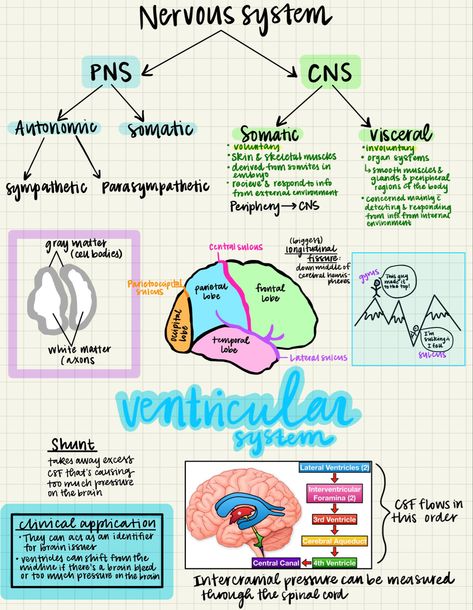 Nervous system
PNS
CNS
Autonomic
Somatic
Sympathetic
Parasympathetic
Somatic
• voluntary
• skin & skeletal muscles
• derived from somites in
embryo
• recieve & respond to info
from external environment
Periphery → CNS
visceral
• involuntary
• organ systems
↳ smooth muscles &
glands & peripheral
regions of the body
• concerned mainly c̄
detecting & responding
from info from internal
environment
gray matter
(cell bodies)
white matter
(axons
Central sulcus
Parietoccipital
sulcus
parietal
lobe
frontal
lobe
occipital
lobe
temporal
lobe
Lateral sulcus
(biggest)
longitudinal
fissure:
down middle of
cerebral hemis-
pheres
gyrus
This guy
made it
to the top!
I'm
sulking b/c
I fell
sulcus
ventricular
system
Shunt
takes away excess
CSF that's causing
too much pressure
on the brain
clinical application
• They can act as an identifier
for brain issues
• ventricles can shift from the
midline if there's a brain bleed
or too much pressure on the brain
Lateral Ventricles (2)
Interventricular
Foramina (2)
3rd Ventricle
Cerebral Aqueduct
4th Ventricle
Central Canal
CSF flows in
this order
Intercranial pressure can be measured
through the spinal cord